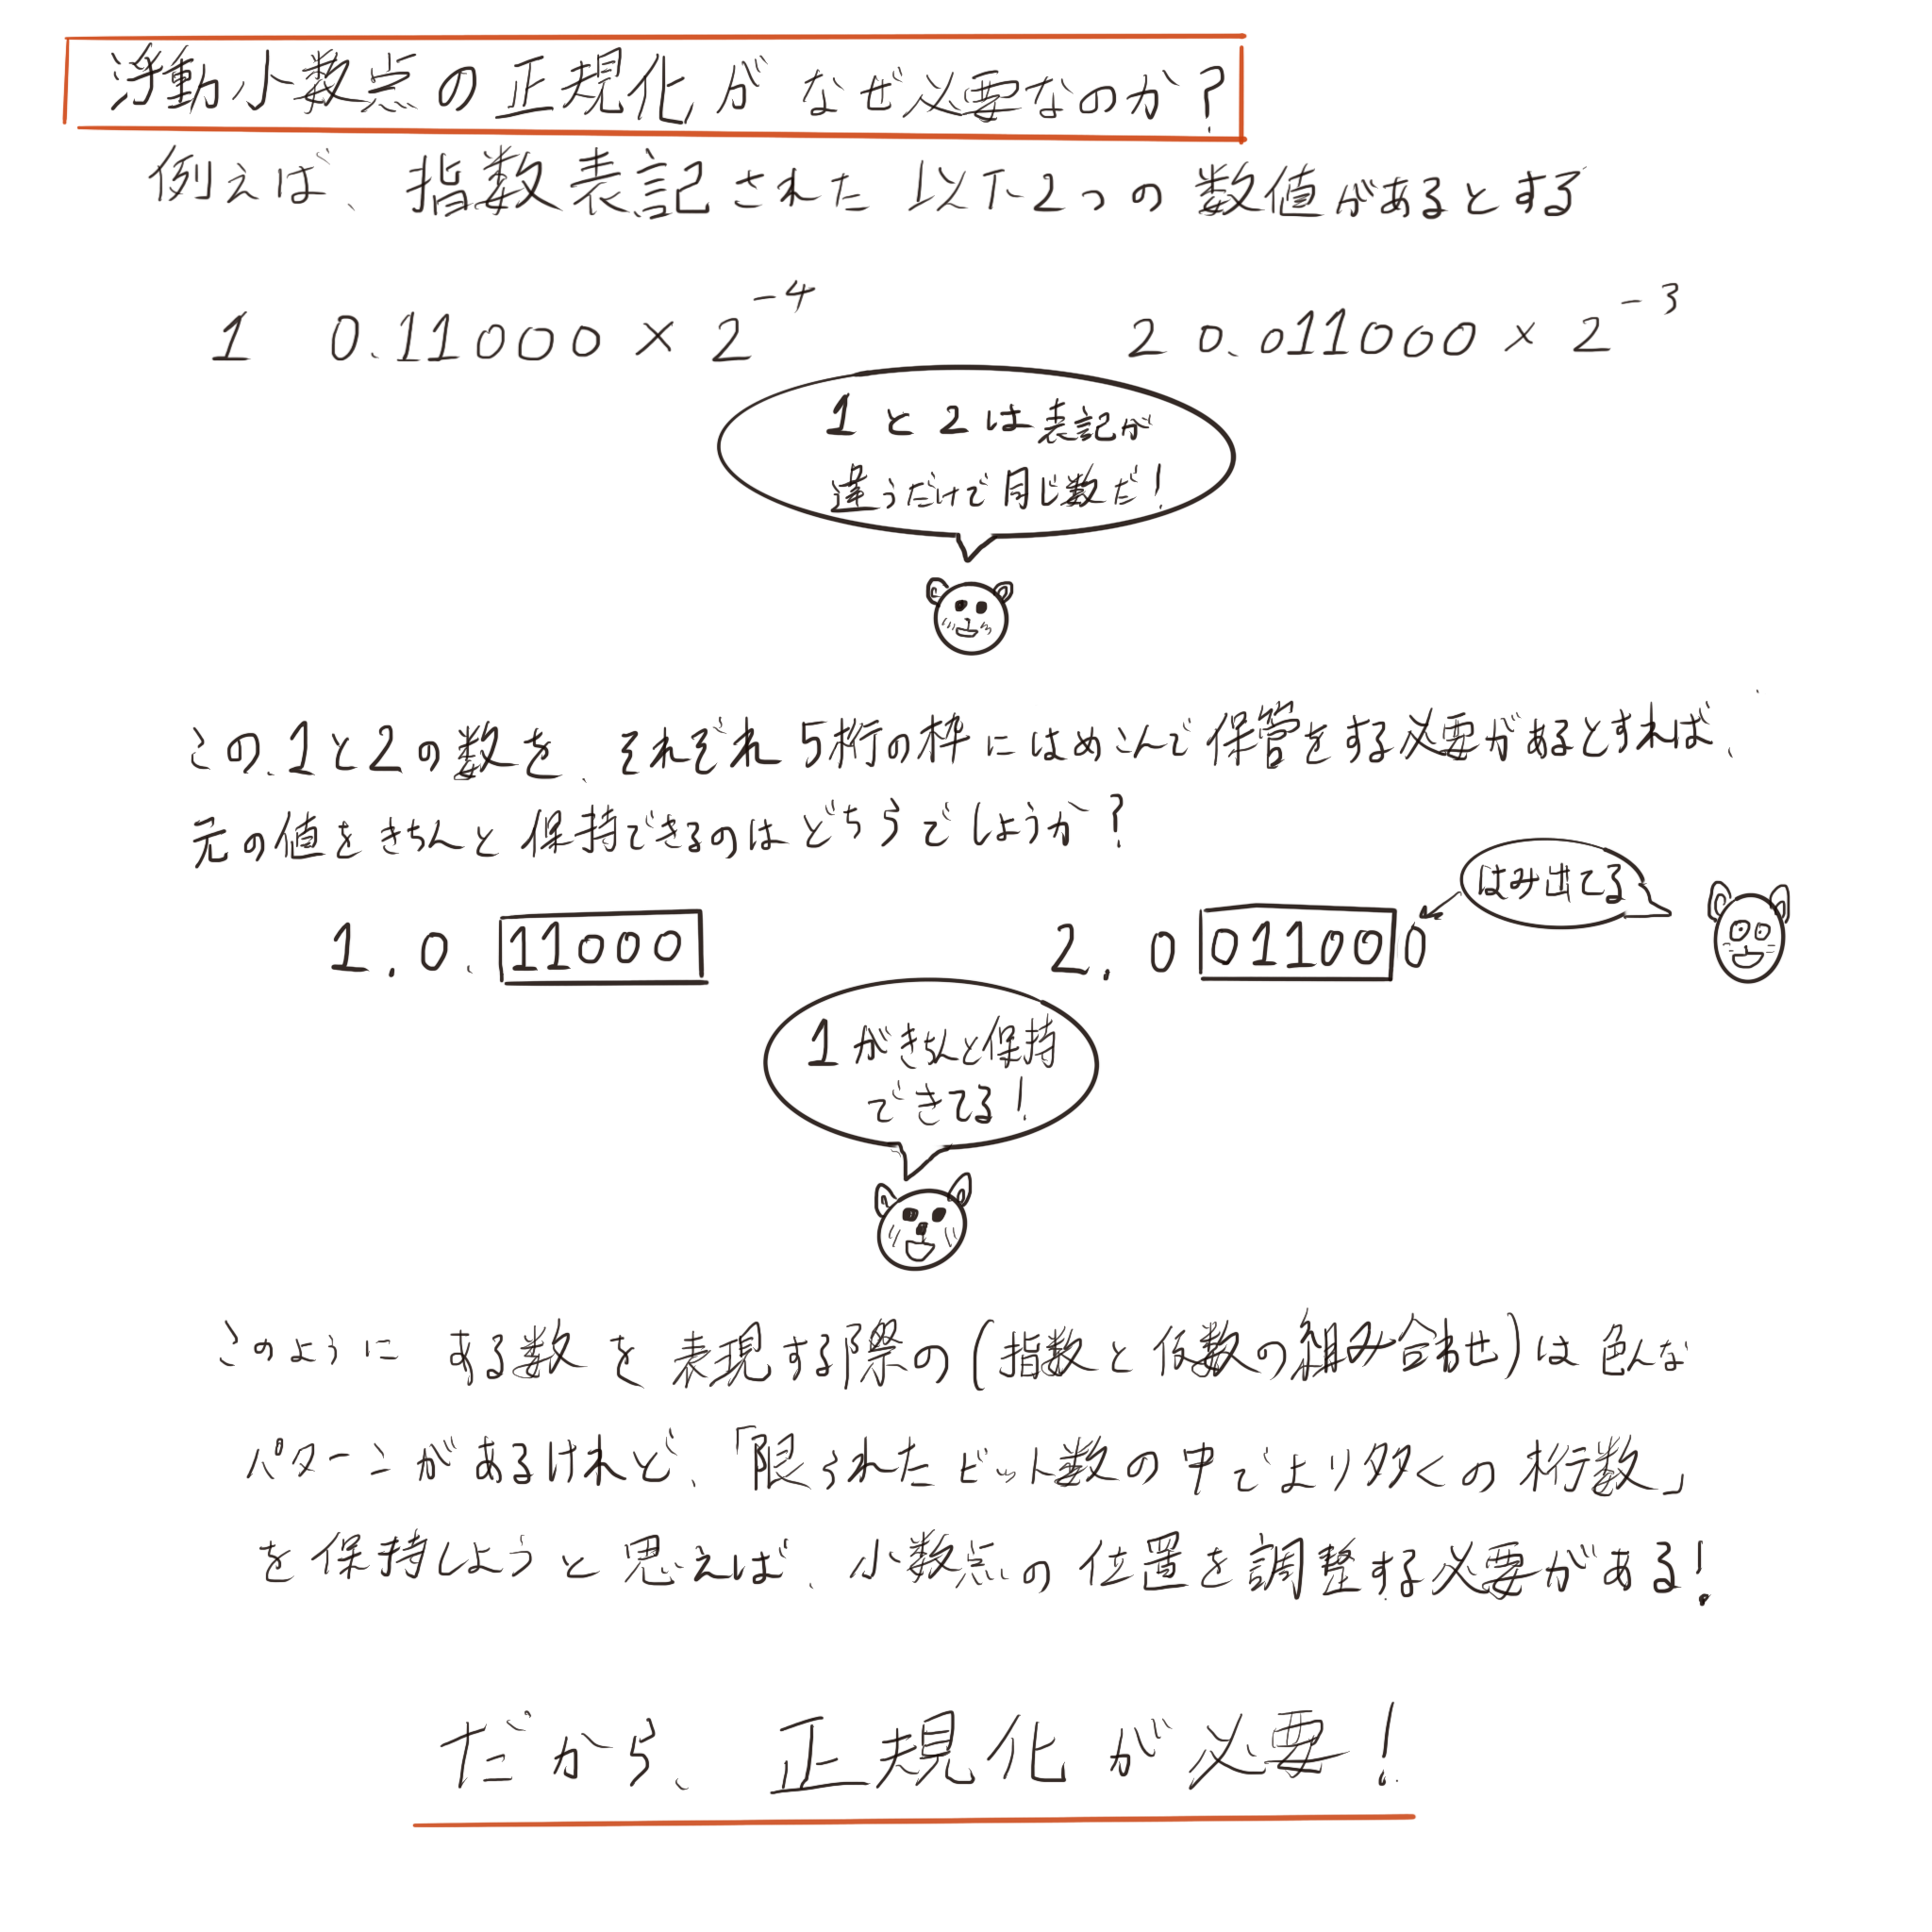 浮動小数点の正規化がなぜ必要なのか?
例えば、指数表記された以下2つの数値があるとする
1 0.11000 × 2⁻⁴
2 0.011000 × 2⁻³
1と2は表記が
違うだけで同じ数だ!
この、1と2の数を、それぞれ5桁の枠にはめこんで保管をする必要があるとすれば、
元の値をきちんと保持できるのはどちらでしょうか?
はみ出てる
1. 0. 11000
2. 0 011000
1がきちんと保持
できてる!
このように ある数を表現する際の(指数と仮数の組み合わせ)は色んな
パターンがあるけれど、「限られたビット数の中でより多くの桁数」
を保持しようと思えば、小数点の位置を調整する必要がある!
だから、正規化が必要!